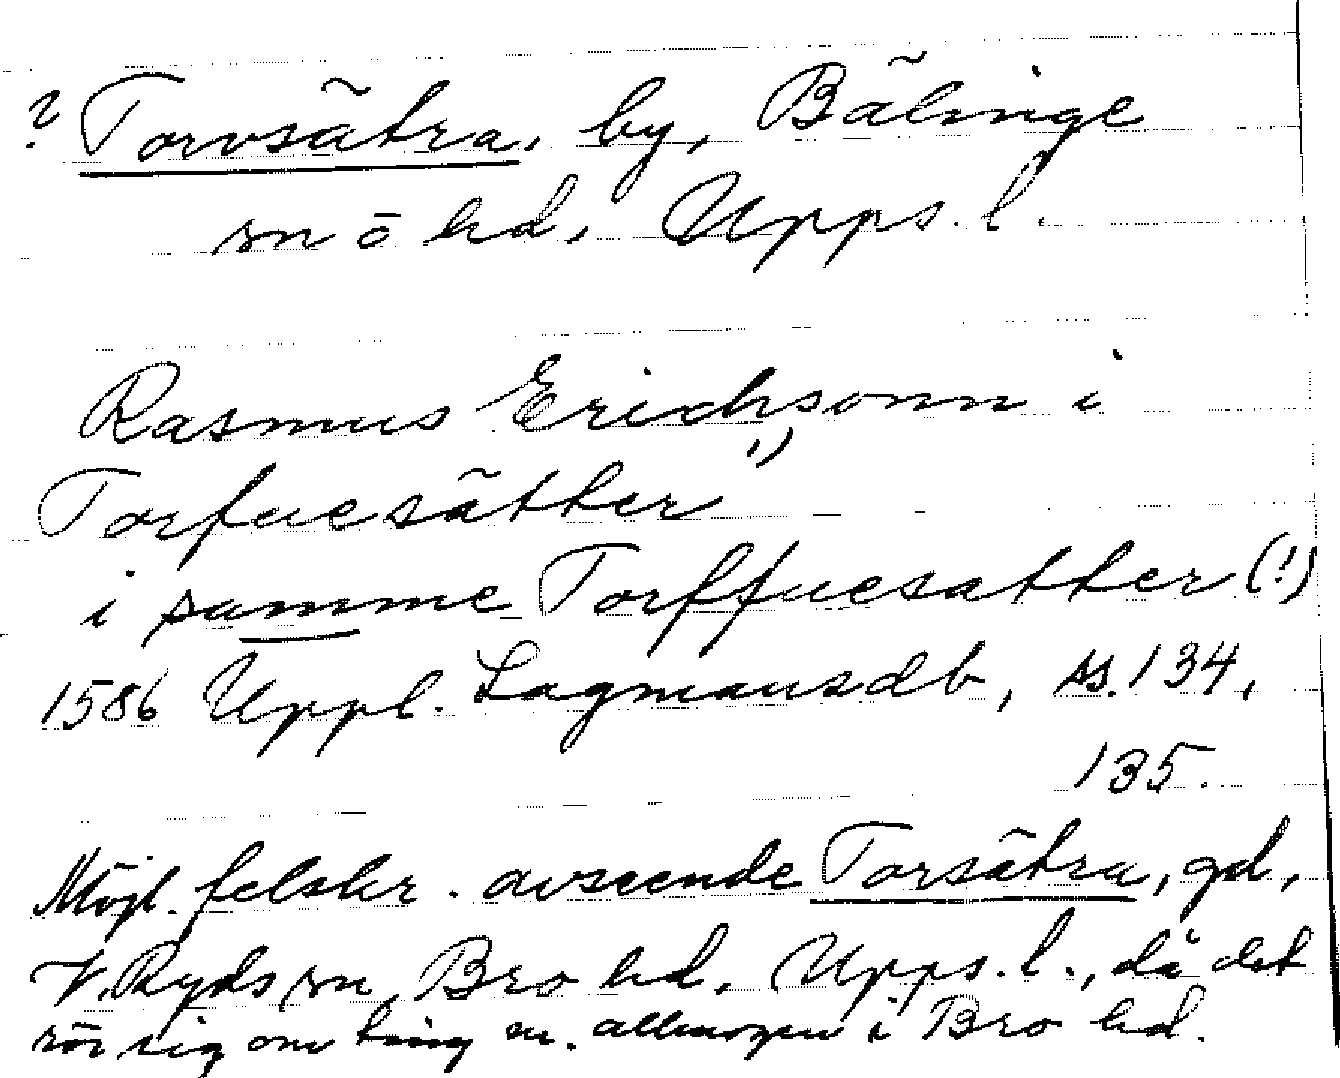 ? Torvsätra, by, Bälinge
sn o hd, Upps. l.
Rasmus Erichsonn i
Torfuesätter 1)
i samme Torffuesatter (!)
1586 Uppl. Lagmansdb, ss. 134,
135.
Möjl. felskr. avseende Torsätra, gd,
V. Ryds sn, Bro hd. Upps. l., då det
rör sig om ting m. allmogen i Bro hd.